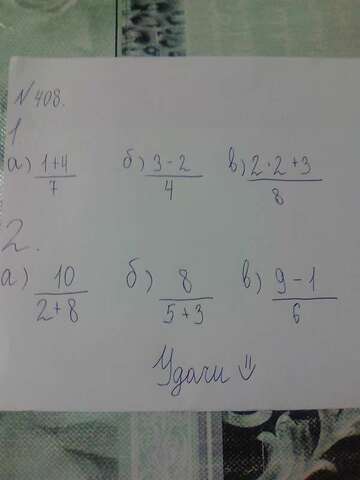 №408.
1
а) 1+4/7 б) 3-2/4 в) 2·2+3/8
2.
а) 10/2+8 б) 8/5+3 в) 9-1/6
Удачи =)